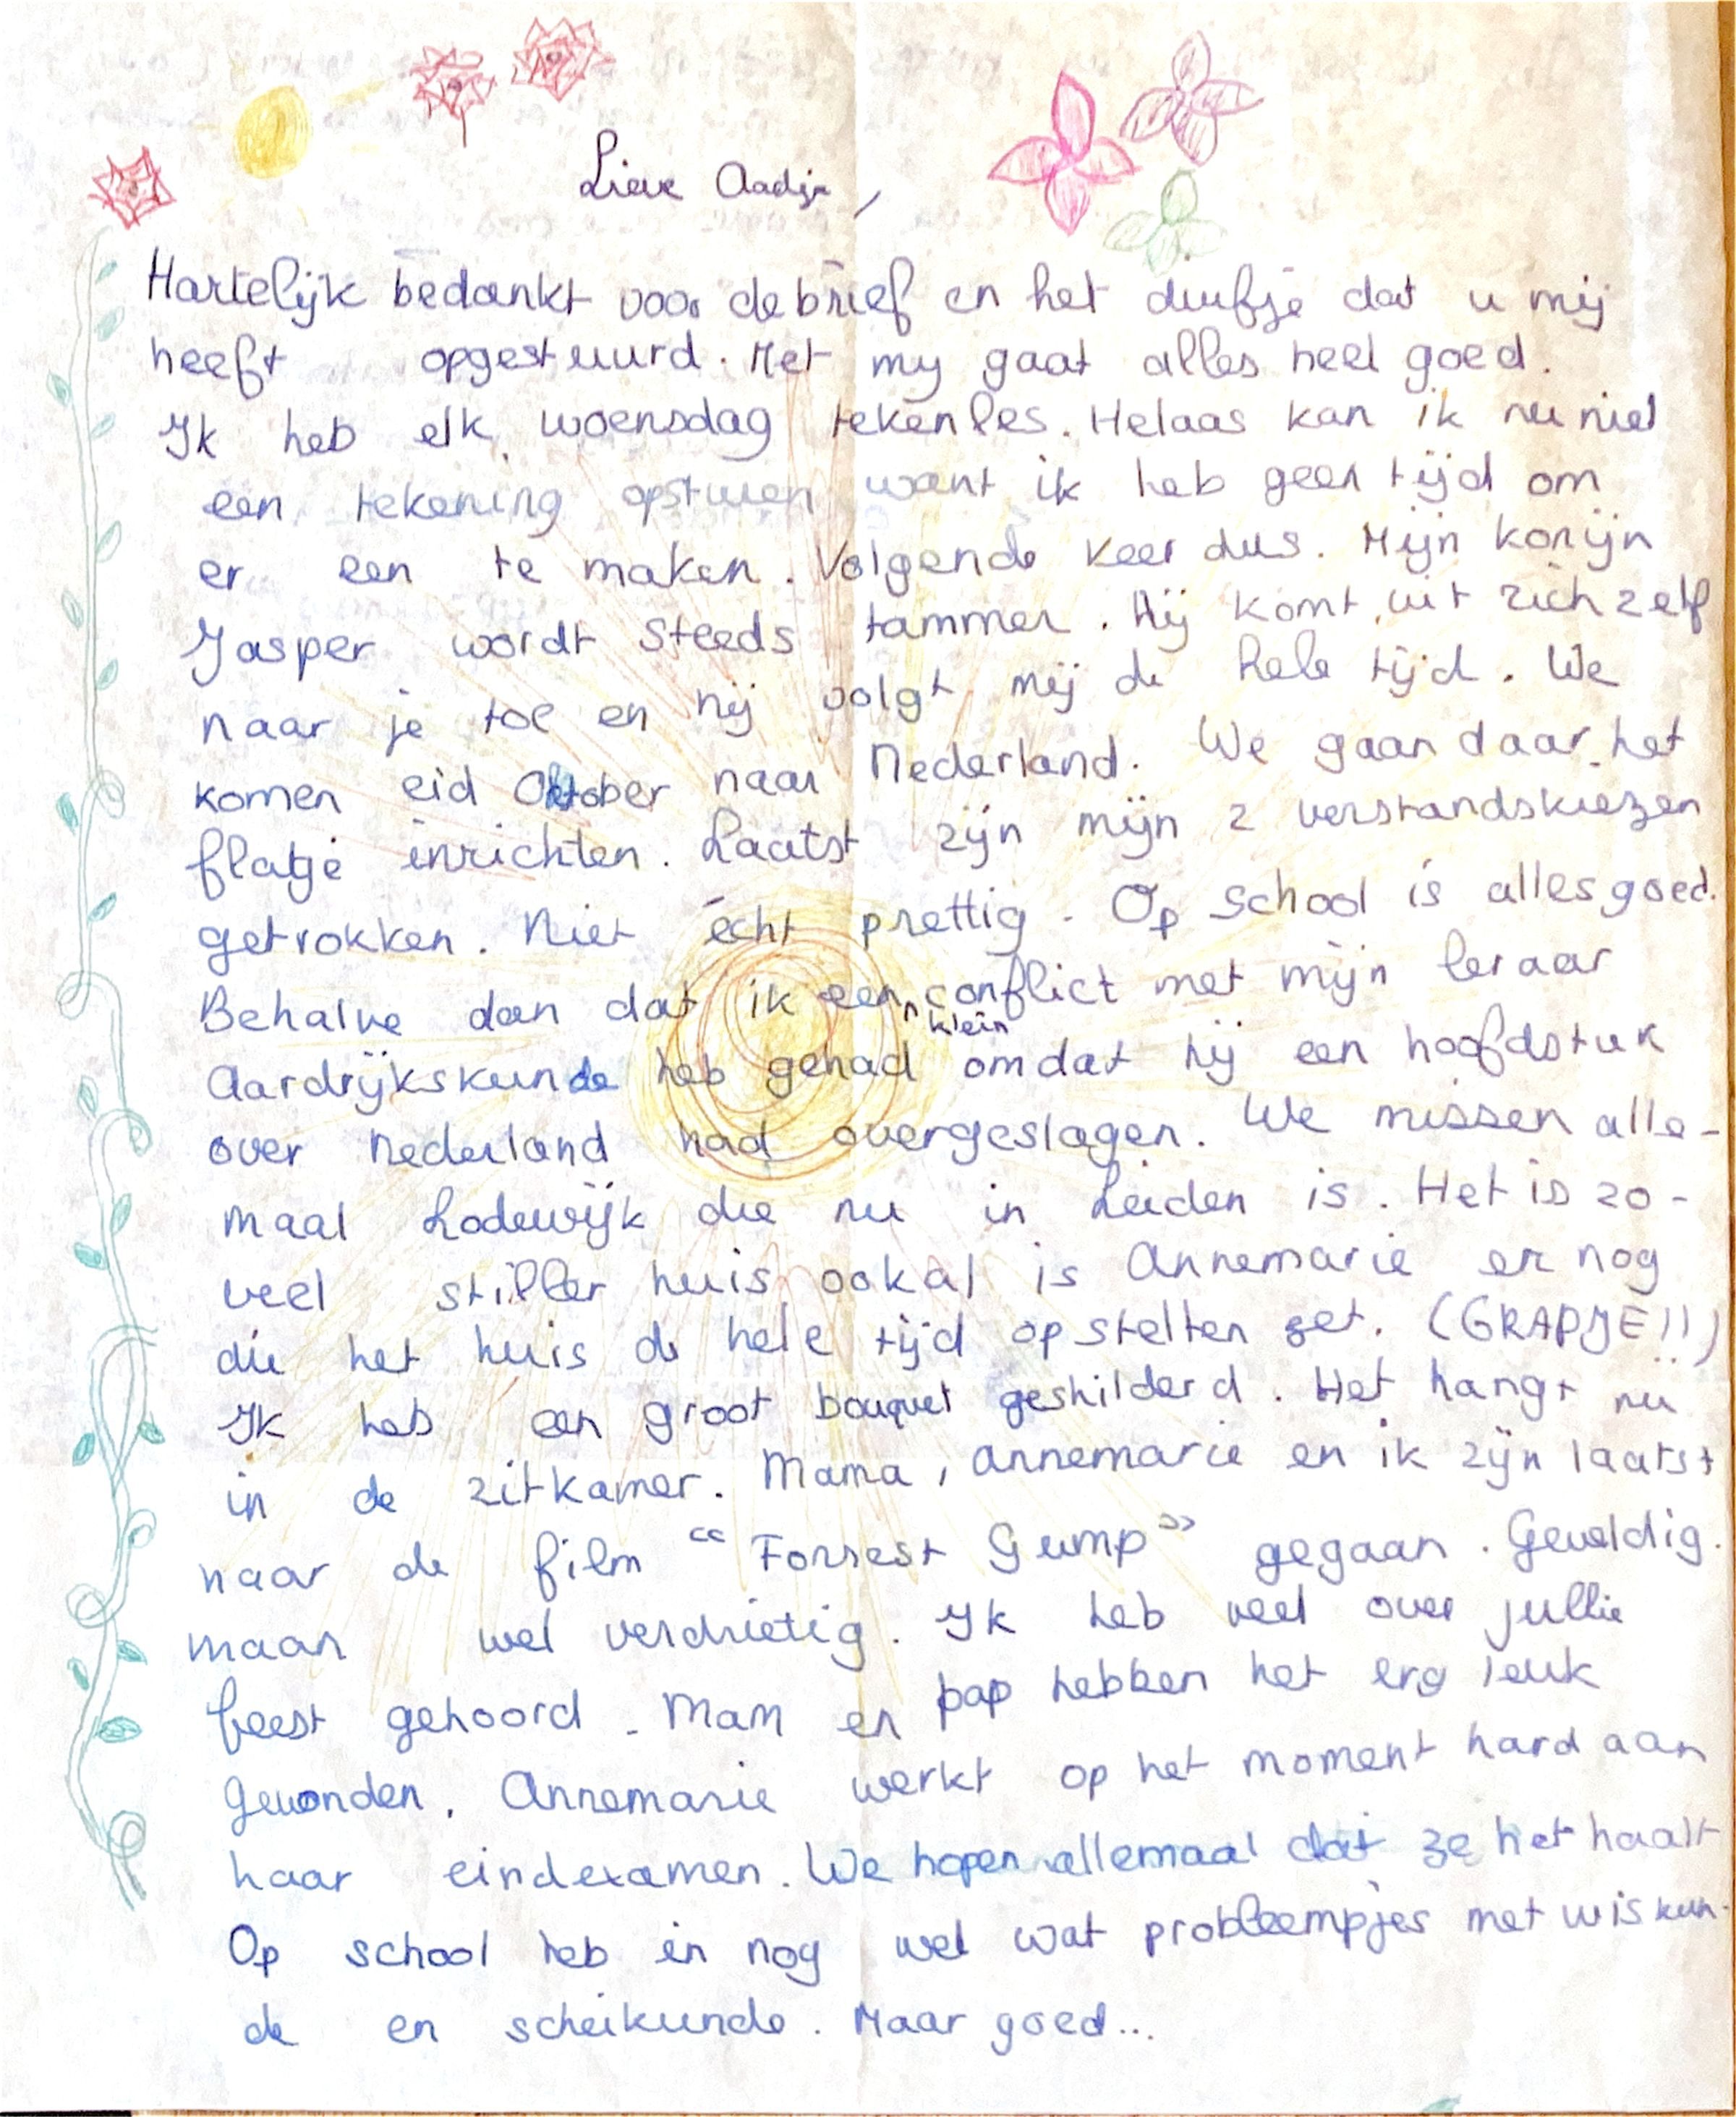 Lieve Aadje,
Hartelijk bedankt voor de brief en het duifje dat u mij
heeft opgestuurd. Met mij gaat alles heel goed.
Ik heb elk woensdag tekenles. Helaas kan ik nu niet
een tekening opsturen want ik heb geen tijd om
er een te maken. Volgende keer dus. Mijn konijn
Jasper wordt steeds tammer. Hij komt uit zich zelf
naar je toe en hij volgt mij de hele tijd. We
komen eid Oktober naar Nederland. We gaan daar het
flatje inrichten. Laatst zijn mijn 2 verstandskiezen
getrokken. Niet écht prettig. Op school is alles goed.
Behalve dan dat ik een klein conflict met mijn leraar
Aardrijkskunde heb gehad omdat hij een hoofdstuk
over Nederland had overgeslagen. We missen alle-
maal Lodewijk die nu in Leiden is. Het is zo-
veel stiller huis ookal is Annemarie er nog
die het huis de hele tijd op stelten zet. (GRAPJE!!)
Ik heb een groot bouquet geshilderd. Het hangt nu
in de zitkamer. Mama, Annemarie en ik zijn laatst
naar de film "Forrest Gump" gegaan. Geweldig.
maar wel verdrietig. Ik heb veel over jullie
feest gehoord. Mam en pap hebben het erg leuk
gevonden. Annemarie werkt op het moment hard aan
haar eindexamen. We hopen allemaal dat ze het haalt
Op school heb ik nog wel wat probleempjes met wiskun-
de en scheikunde. Maar goed...